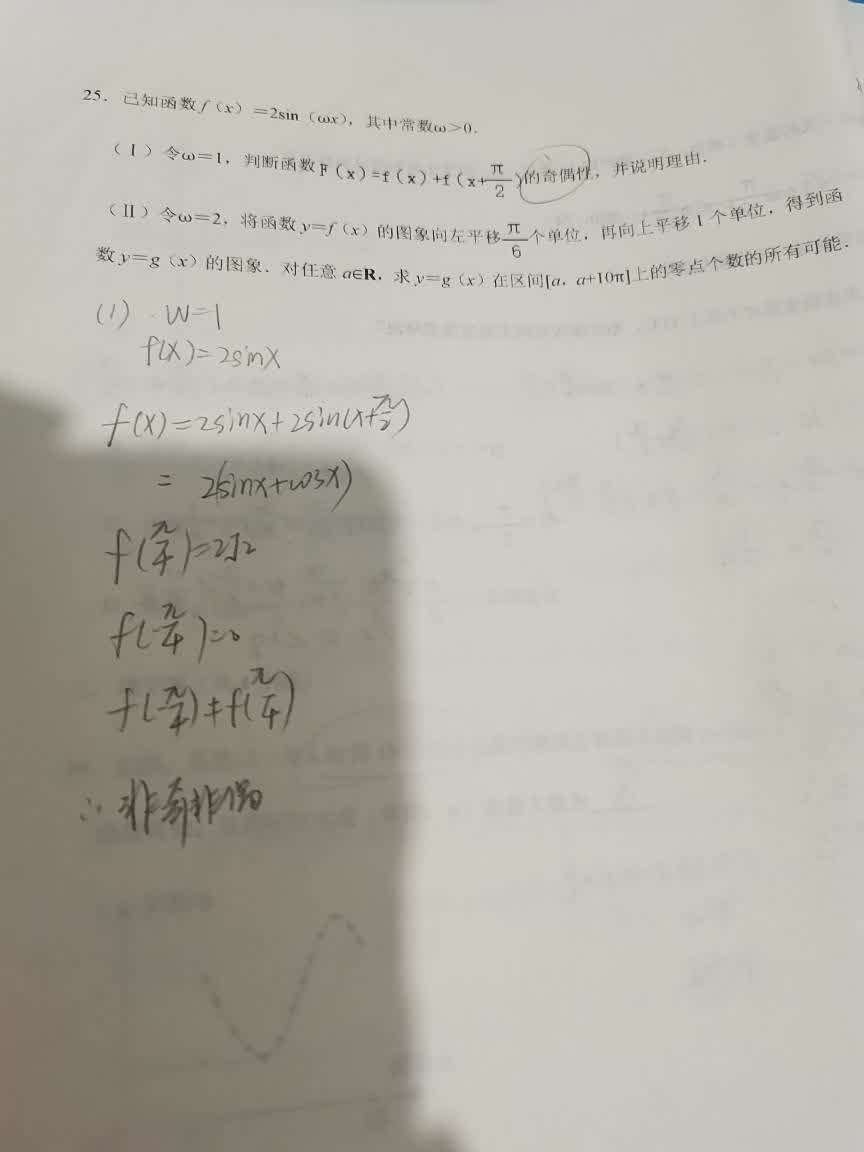 25．已知函数 f（x）＝2sin（ωx），其中常数ω＞0．
（Ⅰ）令ω＝1，判断函数F（x）=f（x）+f（x+π/2）的奇偶性，并说明理由．
（Ⅱ）令ω＝2，将函数 y＝f（x）的图象向左平移π/6个单位，再向上平移 1 个单位，得到函
数 y＝g（x）的图象．对任意 a∈R，求 y＝g（x）在区间[a，a+10π]上的零点个数的所有可能．
(1) . W=1
f(x)=2sinx
f(x)=2sinx+2sin(x+π/2)
= 2(sinx+cosx)
f(π/4)=2√2
f(-π/4)=0
f(-π/4)≠f(π/4)
∴非奇非偶